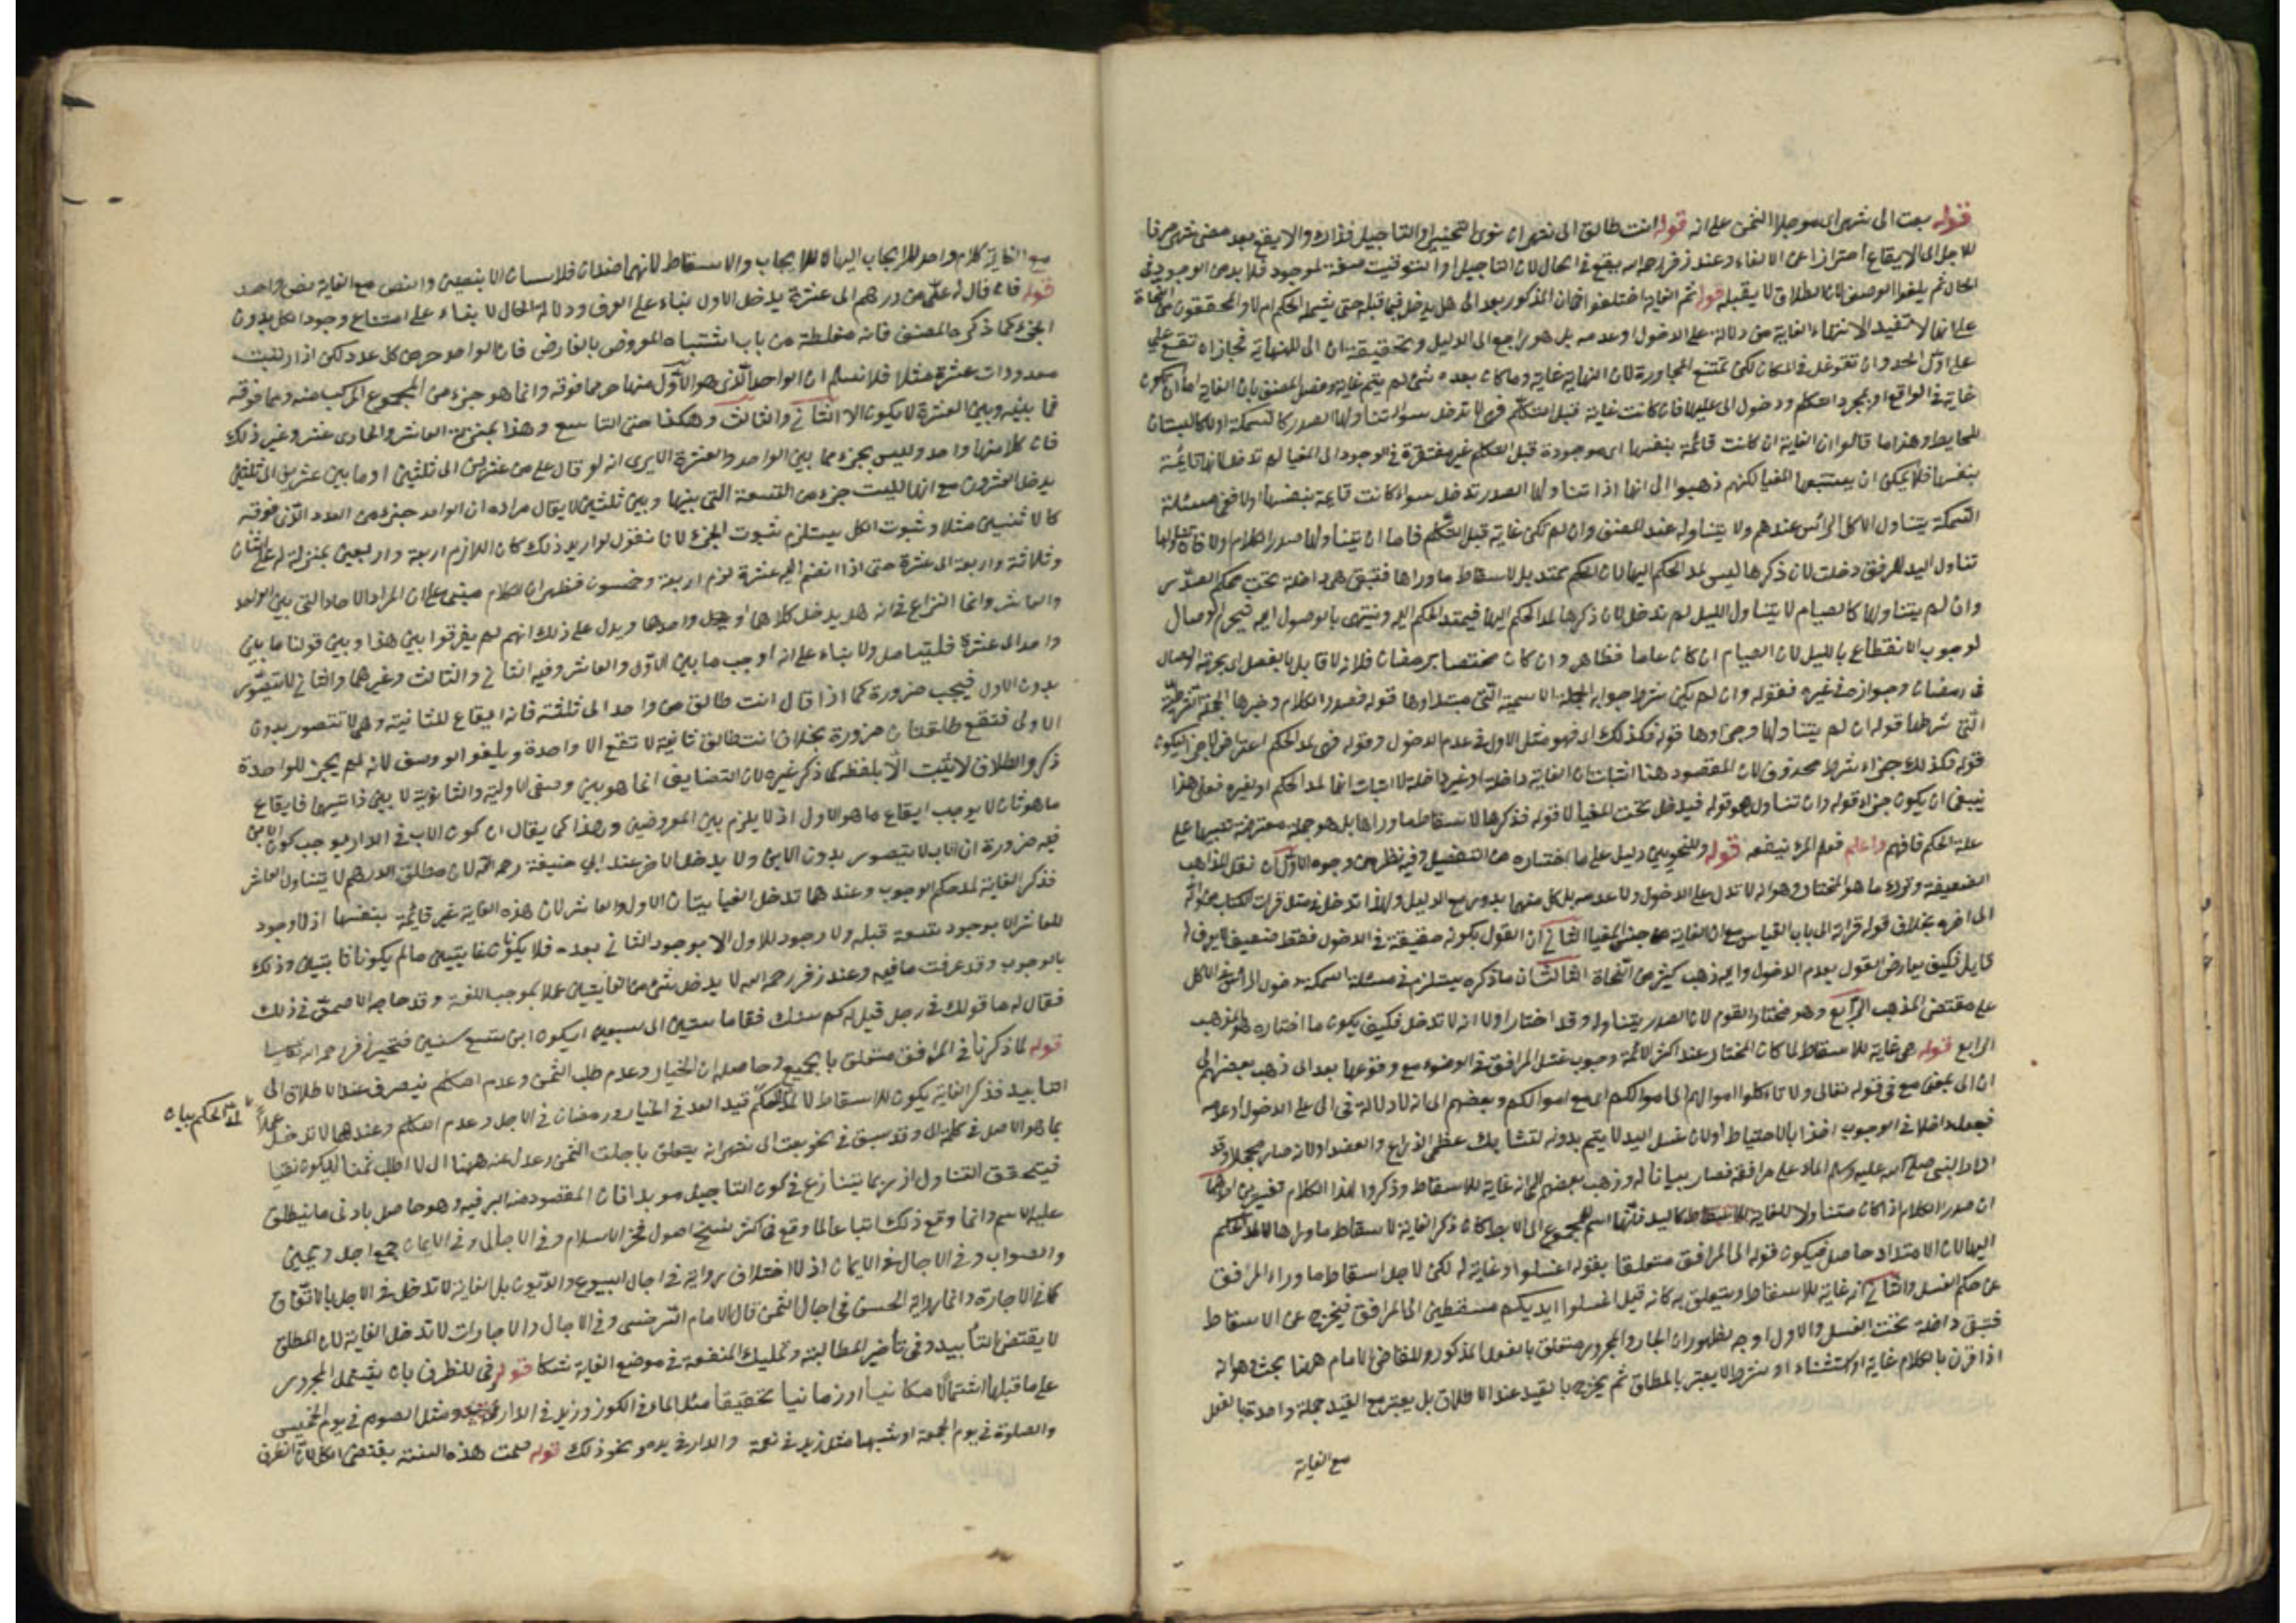 قوله بعت الى شهر اى موجلا الثمن على انه قوله انت طالق الى شهر ان نوى التنجيز او التاجيل فذاك والا يقع بعد مضى شهر صرفا
للاجل الى الايقاع احترازا عن الالغاء وعند زفر رحمه الله يقع فى الحال لان التاجيل او التوقيت صفة لموجود فلا بد من الوجود فى
الحال ثم يلغوا الوصف لان الطلاق لا يقبله قوله ثم الغاية اختلفوا فى ان المذكور بعد الى هل يدخل فيما قبله حتى يشمله الحكم ام لا والمحققون من النحاة
على انها لا تفيد الا انتهاء الغاية من دلالة على الدخول او عدمه بل هو راجع الى الدليل وتحقيقه ان الى للنهاية فجاز ان تقع على
على اول الحد وان تتوغل فى المكان لكن تمتنع المجاورة لان النهاية غاية وما كان بعده شئ لم يتم غاية وفصل المصنف بان الغاية اما ان تكون
غاية فى الواقع او بمجرد التكلم ودخول الى عليها فان كانت غاية قبل التكلم فهى لا تدخل سواء تناولها الصدر كالسمكة او لا كالبستان
للحايط وهذا ما قالوا ان الغاية ان كانت قائمة بنفسها اى موجودة قبل التكلم غير مفتقرة فى الوجود الى المغيا لم تدخل لانها قائمة
بنفسها فلا يمكن ان يستتبعها المغيا لكنهم ذهبوا الى انها اذا تناولها الصدر تدخل سواء كانت قايمة بنفسها او لا ففى مسئلة
السمكة يتناول الاكل الرأس عندهم ولا يتناوله عند المصنف وان لم تكن غاية قبل التكلم فاما ان يتناولها صدر الكلام او لا فان تناولها
تناول اليد للمرفق دخلت لان ذكرها ليس لمد الحكم اليها لان الحكم ممتد بل لاسقاط ما وراءها فتبقى هى داخلة تحت حكم الصدر
وان لم يتناولها كالصيام لا يتناول الليل لم تدخل لان ذكرها لمد الحكم اليها فيمتد الحكم اليه وينتهى بالوصول اليه فيحرم الوصال
لوجوب الانقطاع بالليل لان الصيام ان كان عاما فظاهر وان كان مختصا برمضان فلانه لا قايل بالفصل اى بحرمة الوصال
فى رمضان وجوازه فى غيره فقوله وان لم يكن شرط جوابه الجملة الاسمية التى مبتداؤها قوله فصدر الكلام وخبرها الجملة الشرطية
التى شرطها قوله ان لم يتناولها وجزاؤها قوله فكذلك اى فهو مثل الاول فى عدم الدخول وقوله فهى لمد الحكم اعتراض
قوله فكذلك جزاء شرط محذوف لان المقصود هنا اثبات ان الغاية داخلة او غير داخلة لا اثبات انها لمد الحكم او لغيره فعلى هذا
ينبغى ان يكون جزاء قوله وان تناول هو قوله فيدخل تحت المغيا لا قوله فذكرها لاسقاط ما وراها بل هو جملة معترضة تنبيها على
علة الحكم فافهم واعلم فعلم المرء ينفعه قوله وللنحويين دليل على ما اختاره من التفصيل وفيه نظر من وجوه الاول ان نقل المذاهب
الضعيفة وترك ما هو المختار وهو انه لا تدل على الدخول ولا عدمه بل كل منهما يدور مع الدليل ولهذا تدخل فى مثل قرات الكتاب من اوله
الى اخره بخلاف قوله قراته الى باب القياس مع ان الغاية من جنس المغيا الثانى ان القول بكونه حقيقة فى الدخول فقط ضعيف لا يعرف له
قايل فكيف يعارض القول بعدم الدخول واليه ذهب كثير من النحاة الثالث ان ما ذكره يستلزم فى مسئلة السمكة دخول الراس فى الاكل
على مقتضى المذهب الرابع وهو مختار القوم لان الصدر يتناوله وقد اختار اولا انه لا تدخل فكيف يكون ما اختاره هو المذهب
الرابع قوله هى غاية للاسقاط لما كان المختار عند اكثر الائمة وجوب غسل المرافق فى الوضوء مع وقوعها بعد الى ذهب بعضهم الى
ان الى بمعنى مع فى قوله تعالى ولا تاكلوا اموالهم الى اموالكم اى مع اموالكم وبعضهم الى انه لا دلالة فى الى على الدخول او عدمه
فجعله داخلا فى الوجوب اخذا بالاحتياط او لان غسل اليد لا يتم بدونه لتشابك عظمى الذراع والعضد او لانه صار مجملا وقد
ادار النبى صلى الله عليه وسلم الماء على مرافقه فصار بيانا له وذهب بعضهم الى انه غاية للاسقاط وذكروا لهذا الكلام تفسيرين الاول
ان صدر الكلام اذا كان متناولا للغاية كاليد فانها اسم للمجموع الى الابط كان ذكر الغاية لاسقاط ما وراها لا لمد الحكم
اليها لان الامتداد حاصل فيكون قوله الى المرافق متعلقا بقوله اغسلوا وغاية له لكن لاجل اسقاط ما وراء المرافق
عن حكم الغسل والثانى انه غاية للاسقاط ويتعلق به كانه قيل اغسلوا ايديكم مسقطين الى المرافق فيخرج عن الاسقاط
فتبقى داخلة تحت الغسل والاول اوجه لظهور ان الجار والمجرور متعلق بالفعل المذكور وللقاضى الامام ههنا بحث وهو انه
اذا قرن بالكلام غاية او استثناء او شرط لا يعتبر بالمطلق ثم يخرج بالقيد عند الاطلاق بل يعتبر مع القيد جملة واحدة فالفعل
مع الغاية
مع الغاية كلام واحد للايجاب اليها لا للايجاب والاسقاط لانهما ضدان فلا يثبتان الا بنصين والنص مع الغاية نص واحد
قوله فان قال له على من درهم الى عشرة يدخل الاول بناء على العرف ودلالة الحال لا بناء على امتناع وجود الكل بدون
الجزء كما ذكره المصنف فانه مغلطة من باب اشتباه المعروض بالعارض فان الواحد جزء من كل عدد لكن اذا رتبت
معدودات عشرة مثلا فلا نسلم ان الواحد الذى هو الاول منها جزء مما فوقه وانما هو جزء من المجموع المركب منه ومما فوقه
فما بينه وبين العشرة لا يكون الا الثانى والثالث وهكذا حتى التاسع وهذا بمنزلة العاشر والحادى عشر وغير ذلك
فان كلا منها واحد وليس بجزء مما بين الواحد والعشرة الا يرى انه لو قال على من عشرين الى ثلثين او ما بين عشرين الى ثلثين
يدخل العشرون مع انها ليست جزء من التسعة التى بينها وبين ثلثين لا يقال مراده ان الواحد جزء من العدد الذى فوقه
كالاثنين مثلا وثبوت الكل يستلزم ثبوت الجزء لانا نقول لو اريد ذلك كان اللازم اربعة واربعين بمنزلة له على اثنان
وثلاثة واربعة الى عشرة حتى اذا انضم اليه عشرة لزم اربعة وخمسون فظهر ان الكلام مبنى على ان المراد الاحاد التى بين الواحد
والعاشر وانما النزاع فى انه هل يدخل كلاهما او احدهما ويدل على ذلك انهم لم يفرقوا بين هذا وبين قولنا ما بين
واحد الى عشرة فليتامل ولا بناء على انه اوجب ما بين الاول والعاشر وفيه الثانى والثالث وغيرهما والثانى لا يتصور
بدون الاول فيجب ضرورة كما اذا قال انت طالق من واحد الى ثلثة فانه ايقاع للثانية وهى لا تتصور بدون
الاولى فتقع طلقتان ضرورة بخلاف انت طالق ثانية لا تقع الا واحدة ويلغو الوصف لانه لم يجز للواحدة
ذكر والطلاق لا يثبت الا بلفظه كما ذكر غيره لان التضايف انما هو بين وصفى الاولية والثانوية لا بين ذاتيهما فايقاع
ما هو ثان لا يوجب ايقاع ما هو الاول اذ لا يلزم بين المعروضين وهذا كما يقال ان كون الاب فى الدار يوجب كون الابن
فيه ضرورة ان الاب لا يتصور بدون الابن ولا يدخل الاخر عند ابى حنيفة رحمه الله لان مطلق الدرهم لا يتناول العاشر
فذكر الغاية لمد حكم الوجوب وعندهما تدخل الغايتان الاول والعاشر لان هذه الغاية غير قائمة بنفسها اذ لا وجود
للعاشر الا بوجود تسعة قبله ولا وجود للاول الا بوجود الثانى بعده فلا يكونان غايتين ما لم يكونا ثابتين وذلك
بالوجوب وقد عرفت ما فيه وعند زفر رحمه الله لا يدخل شئ من الغايتين عملا بموجب اللغة وقد حاجه الاصمعى فى ذلك
فقال له ما قولك فى رجل قيل له كم سنك فقال ما بين ستين الى سبعين ايكون ابن تسع سنين فتحير زفر رحمه الله
قوله لما ذكرنا فى المرافق متعلق بالجميع وحاصله ان الخيار وعدم طلب الثمن وعدم التكلم ينصرف عند الاطلاق الى
التابيد فذكر الغاية يكون للاسقاط لا لمد الحكم قيد الغد فى الخيار ورمضان فى الاجل وعدم التكلم وعندهما لا تدخل عملا
لمد الحكم بيان
بما هو الاصل فى كلمة الى وقد سبق فى نحو بعت الى شهر انه يتعلق باجلت الثمن وعدل عنه ههنا الى لا اطلب ثمنا ليكون نفيا
فيتحقق التناول اذ ربما يتنازع فى كون التاجيل موبدا فان المقصود منه الترفيه وهو حاصل بادنى ما ينطلق
عليه الاسم وانما وقع ذلك اتباعا لما وقع فى اكثر نسخ اصول فخر الاسلام وفى الاجال وفى الايمان جمع اجل ويمين
والصواب وفى الاجال فى الايمان اذ لا اختلاف رواية فى اجال البيوع والديون بل الغاية لا تدخل فى الاجل بالاتفاق
كما فى الاجارة وانما رواية الحسن فى اجال الثمن قال الامام السرخسى وفى الاجال والاجارات لا تدخل الغاية لان المطلق
لا يقتضى التأبيد وفى تأخير المطالبة وتمليك المنفعة فى موضع الغاية شكا قوله وفى للظرف بان يشتمل المجرور
على ما قبلها اشتمالا مكانيا او زمانيا تحقيقا مثل الماء فى الكوز وزيد فى الدار ومثل الصوم فى يوم الخميس
والصلوة فى يوم الجمعة او تشبيها مثل زيد فى نعمة والدار فى يده ونحو ذلك قوله صمت هذه السنة يقتضى الكل لان الظرف